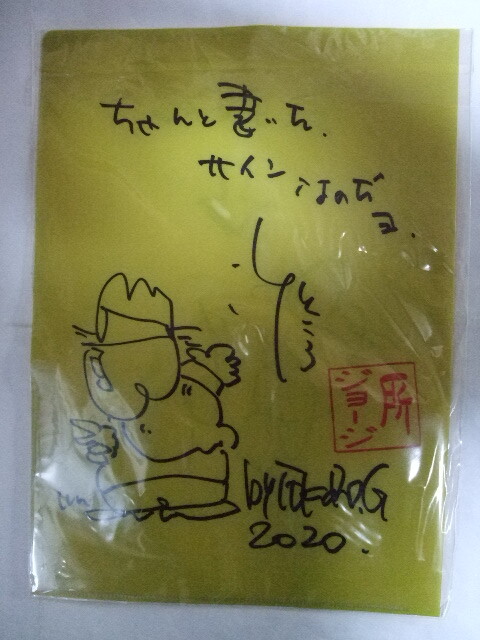 ちゃんと書いた.
サイン なのだ
ヨ.
所
ジョージ
2020.